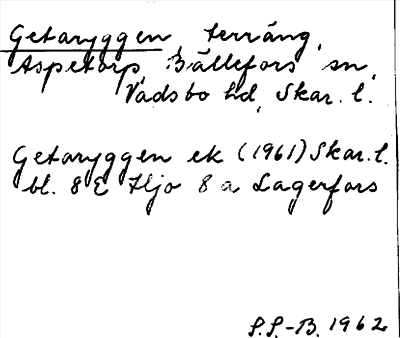 Getaryggen, terräng,
Aspetorp, Bällefors sn,
Vadsbo hd, Skar. l.
Getaryggen ek (1961) Skar. l.
bl. 8 E Hjo 8 a Lagerfors
S.S.-B. 1962